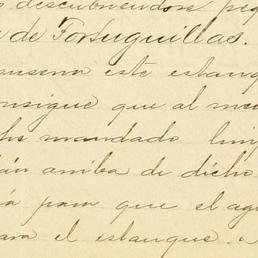 descubriendose peq
de Fortuguillas.
este estanq
nsigue que al me
ha mandado lim
án arriba de dicho
á para que el ag
ara el estanque. a